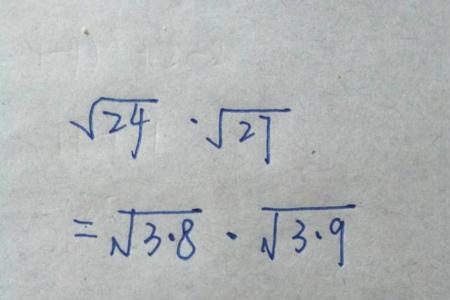 √24 · √27
= √3·8 · √3·9